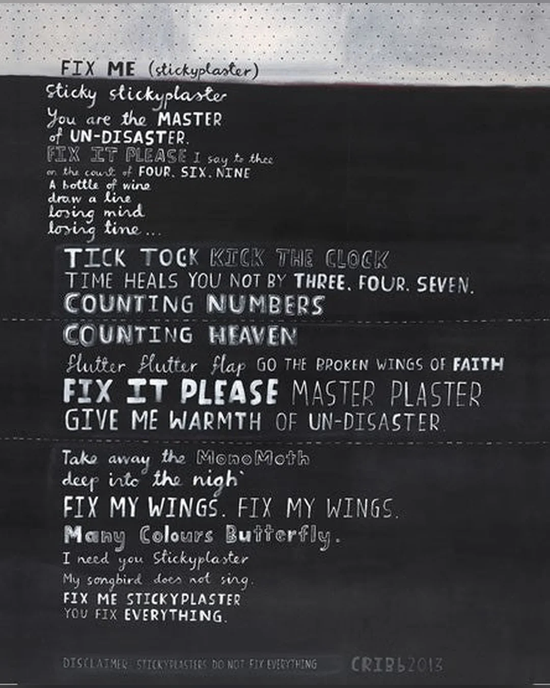 FIX ME (stickyplaster)
Sticky stickyplaster
You are the MASTER
of UN-DISASTER.
FIX IT PLEASE I say to thee
on the count of FOUR. SIX. NINE
A bottle of wine
draw a line
losing mind
losing time...
TICK TOCK KICK THE CLOCK
TIME HEALS YOU NOT BY THREE. FOUR. SEVEN.
COUNTING NUMBERS
COUNTING HEAVEN
flutter flutter flap GO THE BROKEN WINGS OF FAITH
FIX IT PLEASE MASTER PLASTER
GIVE ME WARMTH OF UN-DISASTER.
Take away the MonoMoth
deep into the nigh'
FIX MY WINGS. FIX MY WINGS.
Many Colours Butterfly.
I need you Stickyplaster
My songbird does not sing.
FIX ME STICKYPLASTER
YOU FIX EVERYTHING.
DISCLAIMER: STICKYPLASTERS DO NOT FIX EVERYTHING CRIBB2013